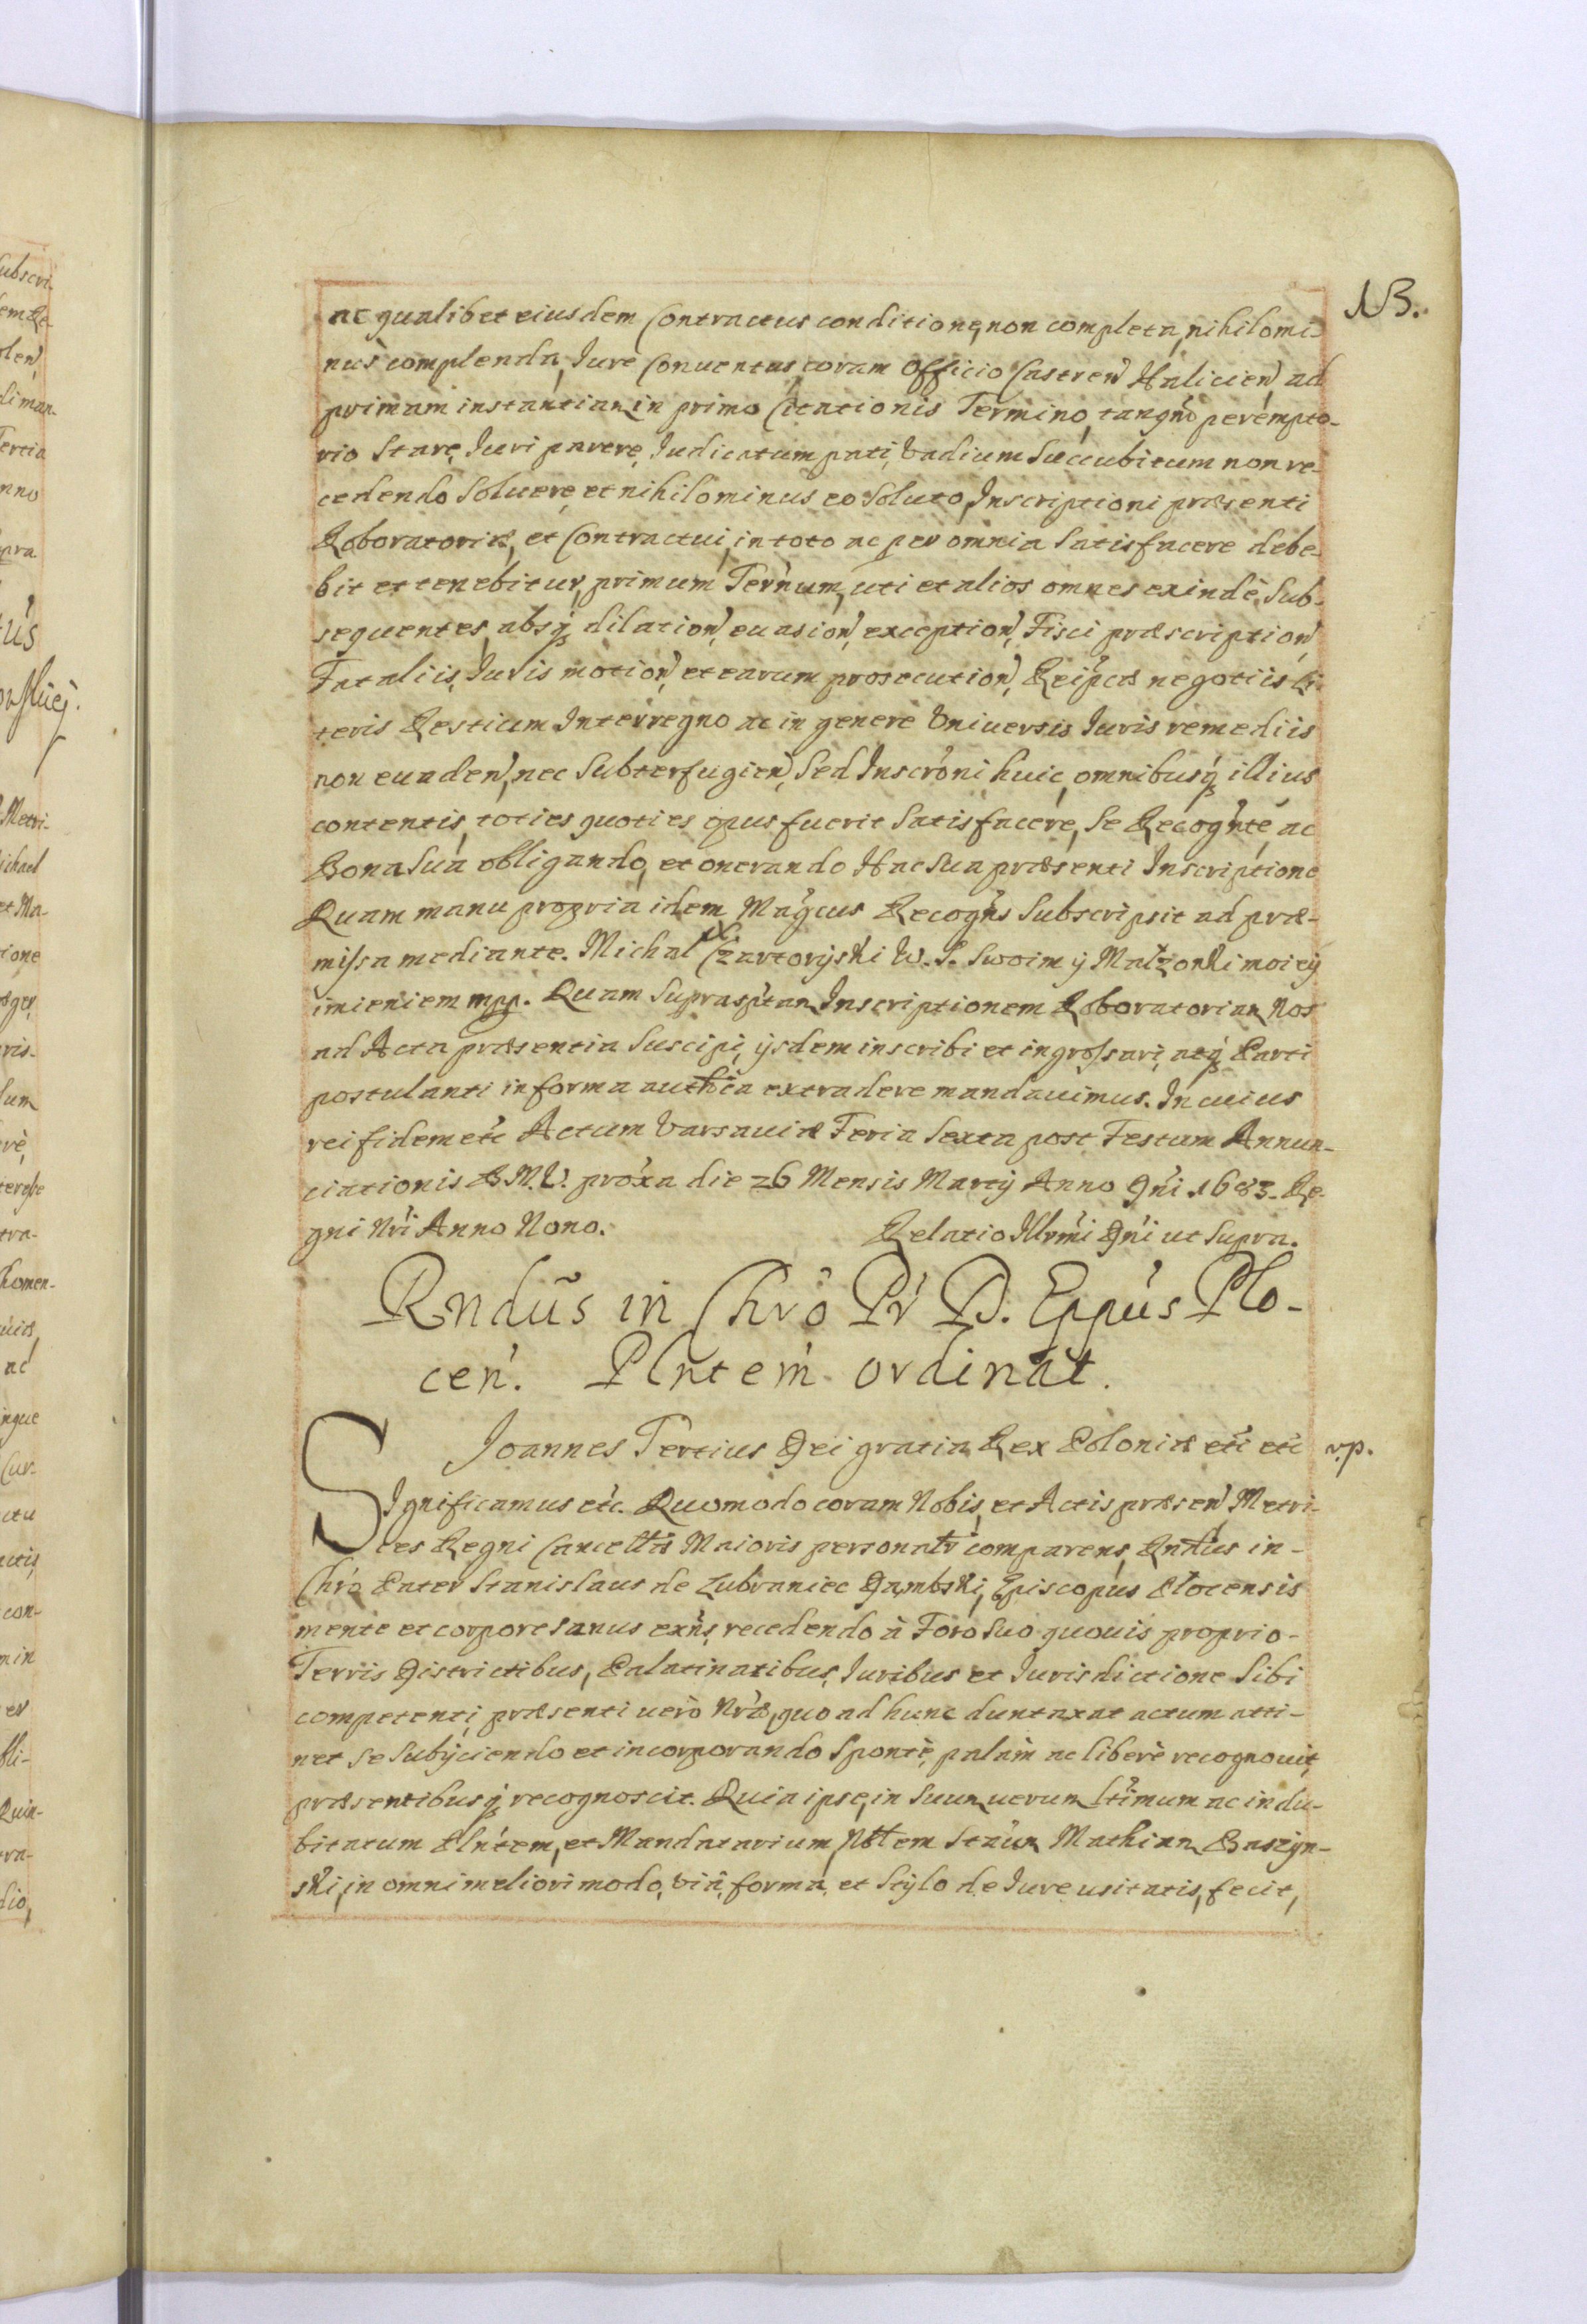 13.
ac qualibet eiusdem Contractus conditione, non completa, nihilomi-
nus complenda, Iure Conuentus, coram Officio Castren̄ Halicien̄ ad
primam instantiam in primo Citationis Termino, tanqn̄o perempto-
rio Stare, Iuri parere, Iudicatum pati, Vadium Succubitum non re-
cedendo Soluere, et nihilominus eo Soluto, Inscriptioni præsenti
Roboratoriæ, et Contractui, in toto ac per omnia Satisfacere debe-
bit et tenebitur, primum Ter̄num, uti et alios omnes exindè Sub-
sequentes, absq̨ dilation̄, euasion̄, exception̄, Fisci præscription̄,
Fataliis, Iuris motion̄, et earum prosecution̄, Reip̄cæ negotiis Li-
teris Restium Interregno ac in genere Vniuersis Iuris remediis
non euaden̄, nec Subterfugien̄, Sed Inscrōni huic, omnibusq̨ illius
contentis, toties quoties opus fuerit Satisfacere, Se Recogn̄te, ac
Bona Sua obligando, et onerando Hac Sua præsenti Inscriptione
Quam manu propria idem Maḡcus Recogn̄s Subscripsit ad præ-
missa mediante. Michal X Czartoryski W. S. Swoim ÿ Malżonki moieÿ
imieniem mpp. Quam Suprasc̄ptam Inscriptionem Roboratoriam Nos
ad Acta præsentia Suscipi, ijsdem inscribi et ingrossari, atq̨ Parti
postulanti in forma auth̄ca extradere mandauimus. In cuius
rei fidem etc̄ Actum Varsauiæ Feria Sexta post Festum Annun-
ciationis B. M. V. prox̄a die 26 Mensis Martÿ Anno Dn̄i 1683. Re-
gni Nr̄i Anno Nono. Relatio Illrm̄i Dn̄i ut Supra.
Rndūs in Chrō Pr̄ D. Eppūs Plo-
cen̄. Plntem̄ ordinat.
Joannes Tertius Dei gratia Rex Poloniæ etc̄ etc̄ v.p.
Significamus etc̄. Quomodo coram Nobis, et Actis præsen̄ Metri-
ces Regni Cancell̄æ Maioris personalr̄ comparens, Rndus in-
Chrō Pater Stanislaus de Lubraniec Dambski, Episcopus Plocensis
mente et corpore sanus exn̄s, recedendo à Foro Suo quouis proprio-
Terris Districtibus, Palatinatibus, Iuribus et Iurisdictione Sibi
competenti, præsenti uerò Nr̄æ, quo ad hunc duntaxat actum atti-
net se Subÿciendo et incorporando Spontè, palàm ac liberè recognouit,
præsentibusq̨ recognoscit. Quia ipse, in Suum uerum Ltīmum ac indu-
bitatum Pln̄tem, et Mandatarium, Nblem Stanūm Mathiam Baszÿn-
ski, in omni meliori modo, viâ, forma, et Stÿlo de Iure usitatis, fecit,